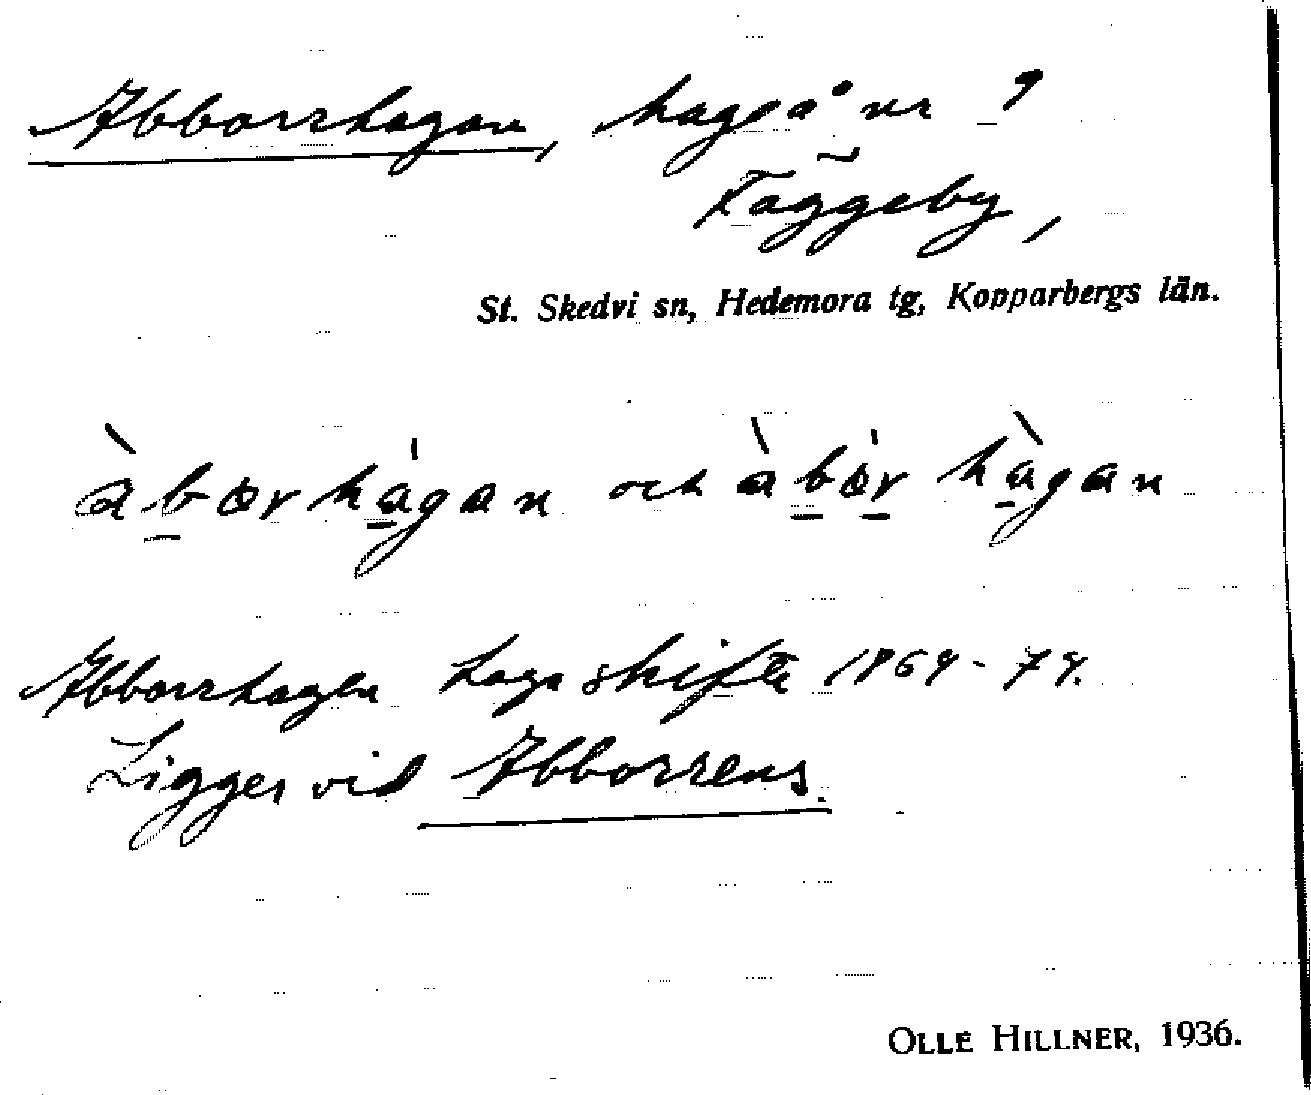 Abborrhagan, hage å nr 9
Faggeby,
St. Skedvi sn, Hedemora tg, Kopparbergs län.
àbɷrhàgan och àbɷ̀r hàgan
Abborrhagen Laga skifte 1864-74.
Ligger vid Abborrens.
OLLE HILLNER, 1936.